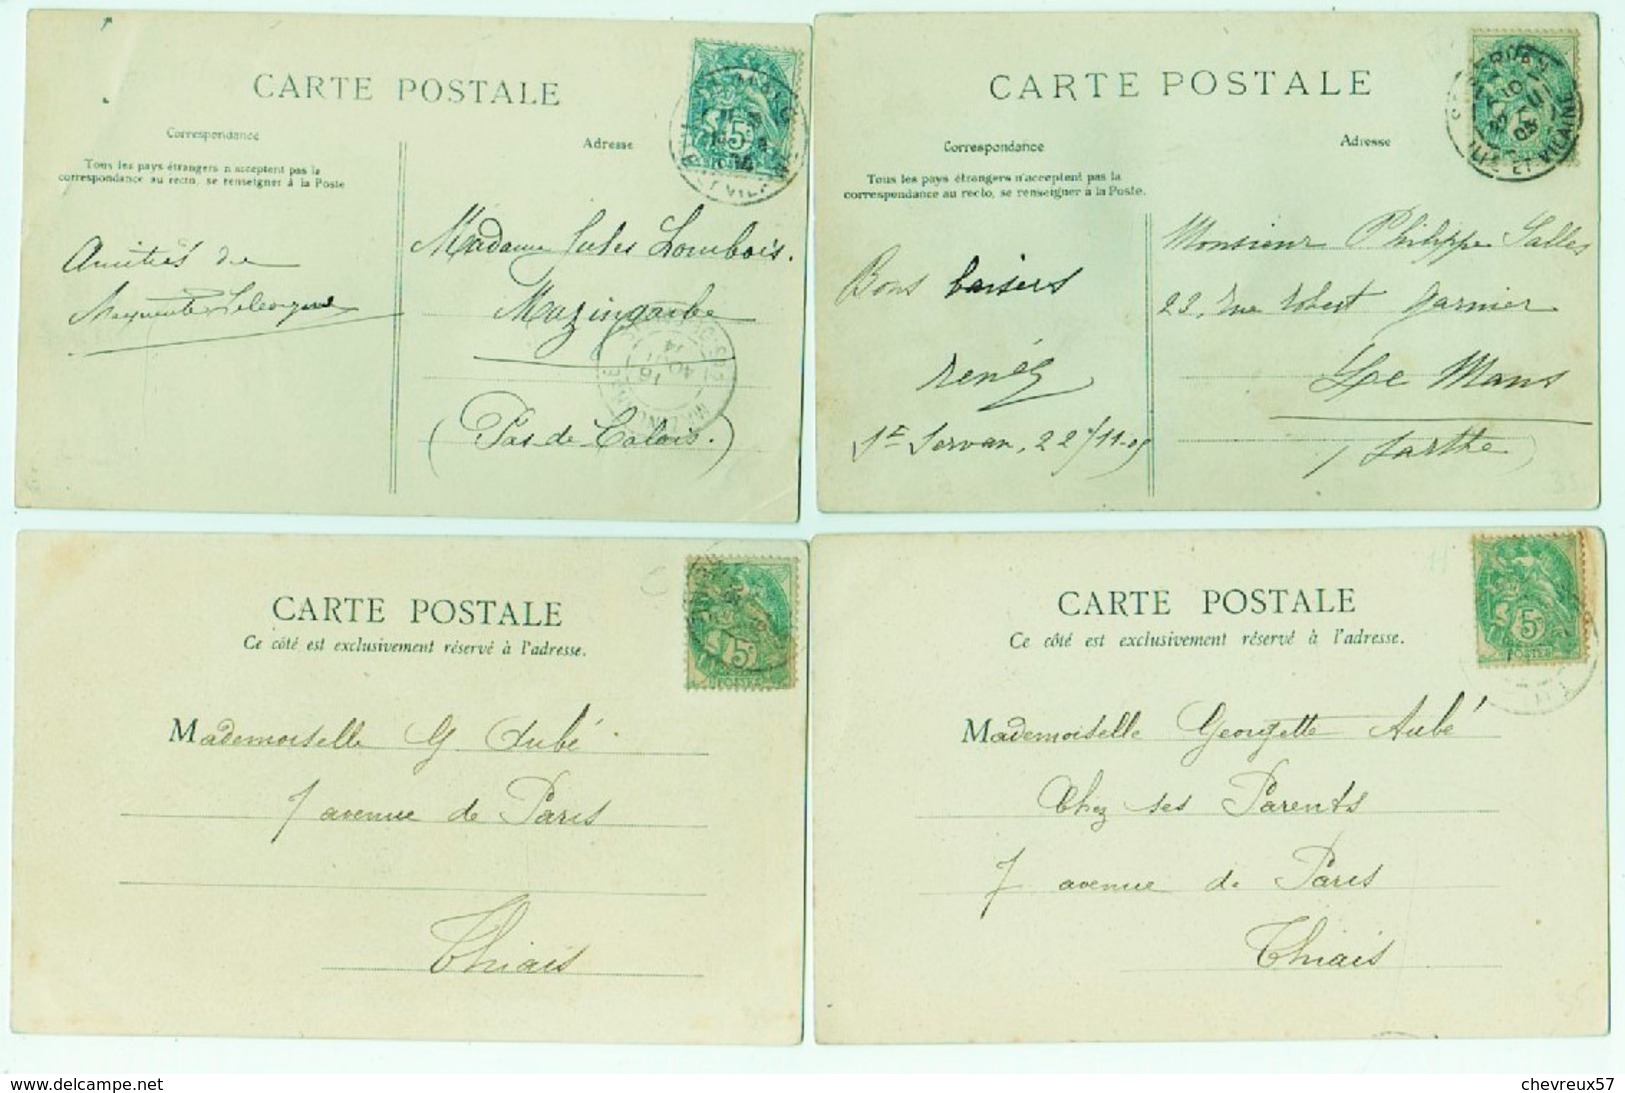 CARTE POSTALE
Correspondance
Adresse
Tous les pays étrangers n'acceptent pas la
correspondance au recto, se renseigner à la Poste
Amitiés de
Madame Jules Lombois.
Mazingarbe
(Pas de Calais.)
5c
CARTE POSTALE
Correspondance
Adresse
Tous les pays étrangers n'acceptent pas la
correspondance au recto, se renseigner à la Poste.
Bons baisers
René
St Servan, 22/11-05
Monsieur Philippe Salles
23, rue Robert Garnier
Le Mans
(Sarthe)
ILLE-ET-VILAINE
CARTE POSTALE
Ce côté est exclusivement réservé à l'adresse.
Mademoiselle G. Aubé
7 avenue de Paris
Thiais
5c
POSTES
CARTE POSTALE
Ce côté est exclusivement réservé à l'adresse.
Mademoiselle Georgette Aubé
Chez ses Parents
7 avenue de Paris
Thiais
5c
POSTES
www.delcampe.net
chevreux57